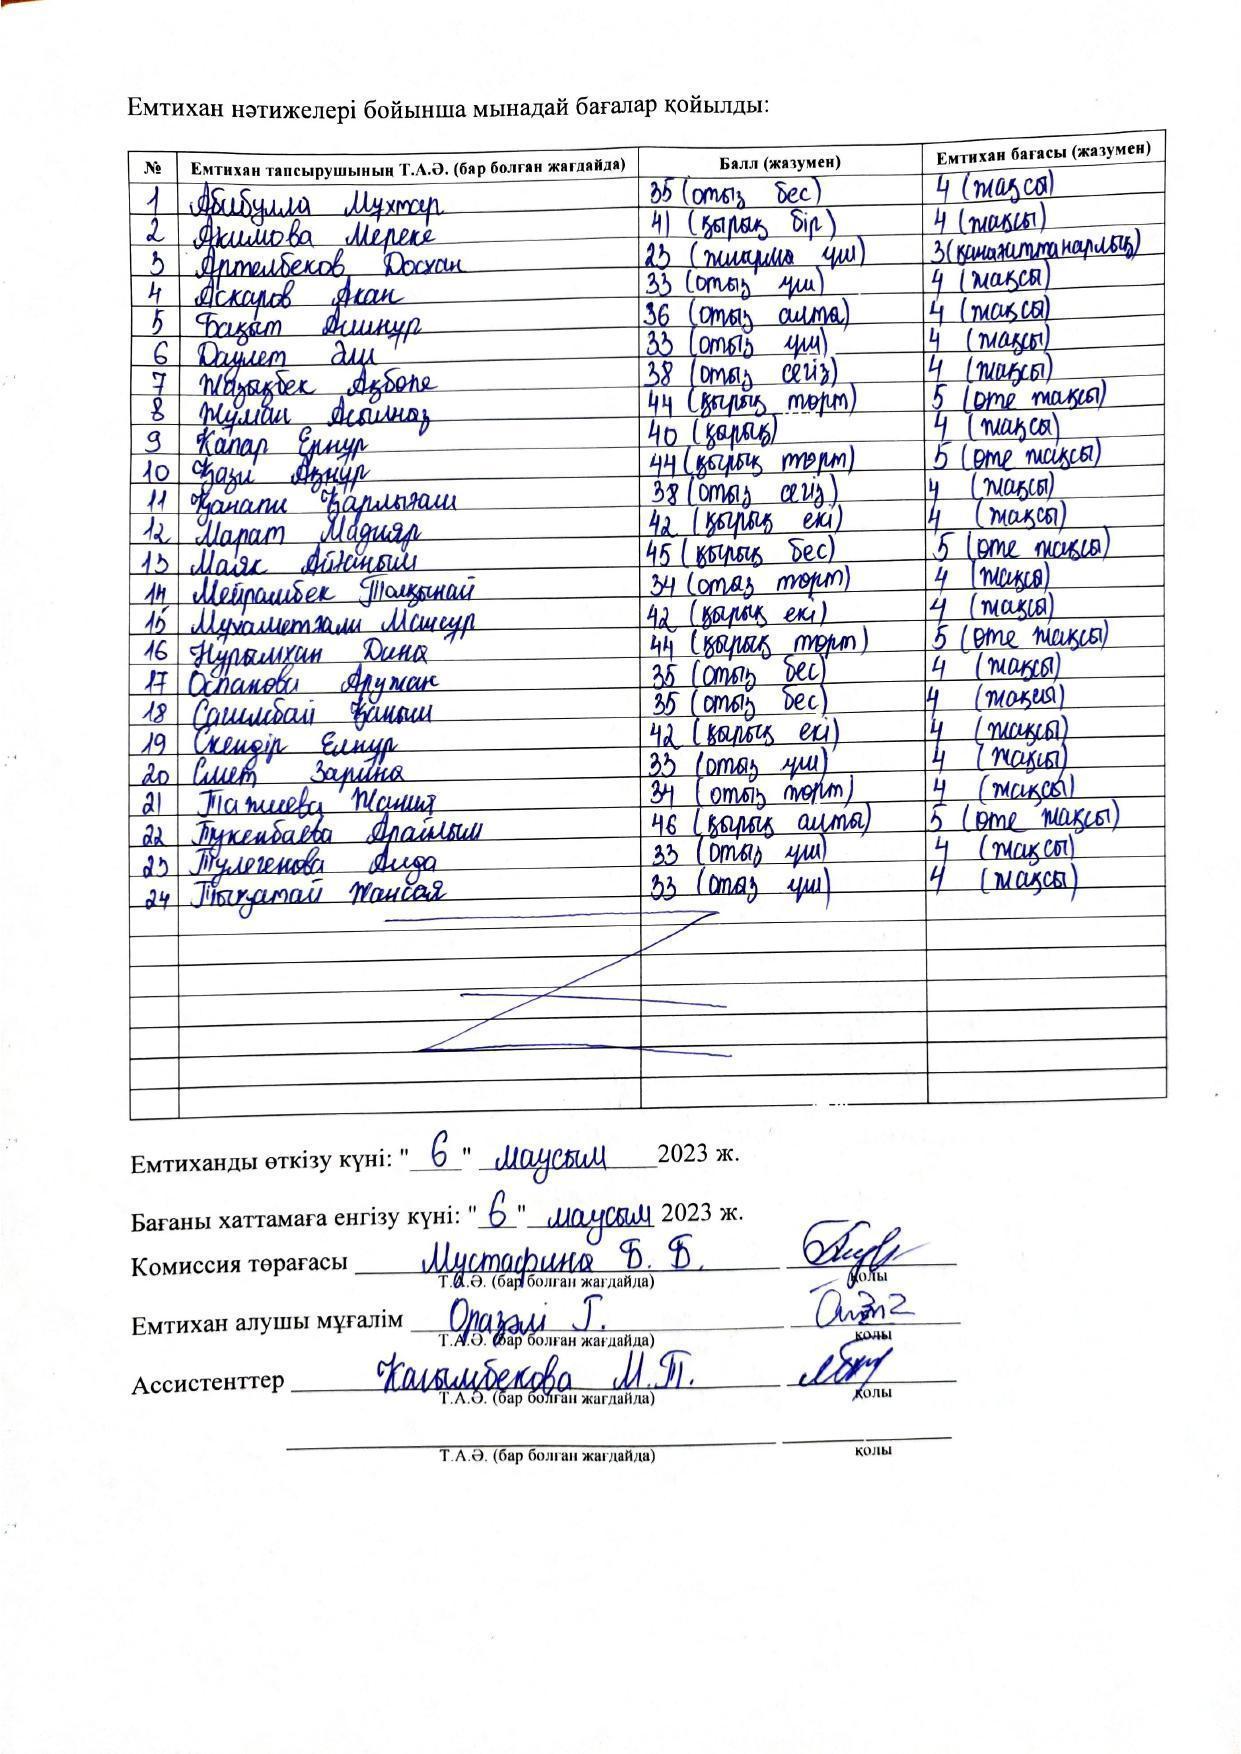 Емтихан нәтижелері бойынша мынадай бағалар қойылды:
№ Емтихан тапсырушының Т.А.Ә. (бар болған жағдайда) Балл (жазумен) Емтихан бағасы (жазумен)
1 Абибулла Мұхтар 35 (отыз бес) 4 (жақсы)
2 Акимова Мереке 41 (қырық бір) 4 (жақсы)
3 Артелбеков Досхан 23 (жиырма үш) 3 (қанағаттанарлық)
4 Аскаров Акан 33 (отыз үш) 4 (жақсы)
5 Бақыт Ашнұр 36 (отыз алты) 4 (жақсы)
6 Даулет Әли 33 (отыз үш) 4 (жақсы)
7 Жазықбек Ақбөпе 38 (отыз сегіз) 4 (жақсы)
8 Жұмаш Асылназ 44 (қырық төрт) 5 (өте жақсы)
9 Капар Ернұр 40 (қырық) 4 (жақсы)
10 Қази Ақнұр 44 (қырық төрт) 5 (өте жақсы)
11 Қанапи Қарлығаш 38 (отыз сегіз) 4 (жақсы)
12 Марат Мадияр 42 (қырық екі) 4 (жақсы)
13 Маяк Айғаным 45 (қырық бес) 5 (өте жақсы)
14 Мейрамбек Толқынай 34 (отыз төрт) 4 (жақсы)
15 Мұхаметжали Мансұр 42 (қырық екі) 4 (жақсы)
16 Нұрымхан Дина 44 (қырық төрт) 5 (өте жақсы)
17 Оспанова Аружан 35 (отыз бес) 4 (жақсы)
18 Сашмбай Қаныш 35 (отыз бес) 4 (жақсы)
19 Скендір Елнұр 42 (қырық екі) 4 (жақсы)
20 Смет Зарина 33 (отыз үш) 4 (жақсы)
21 Тажиева Жания 34 (отыз төрт) 4 (жақсы)
22 Тукенбаева Арайлым 46 (қырық алты) 5 (өте жақсы)
23 Тулегенова Аида 33 (отыз үш) 4 (жақсы)
24 Тықуатай Жансая 33 (отыз үш) 4 (жақсы)
Емтиханды өткізу күні: "6" маусым 2023 ж.
Бағаны хаттамаға енгізу күні: "6" маусым 2023 ж.
Комиссия төрағасы Мустафина Б. Б.
Т.А.Ә. (бар болған жағдайда) қолы
Емтихан алушы мұғалім Оразәлі Г.
Т.А.Ә. (бар болған жағдайда) қолы
Ассистенттер Касымбекова М.Т.
Т.А.Ә. (бар болған жағдайда) қолы
Т.А.Ә. (бар болған жағдайда) қолы